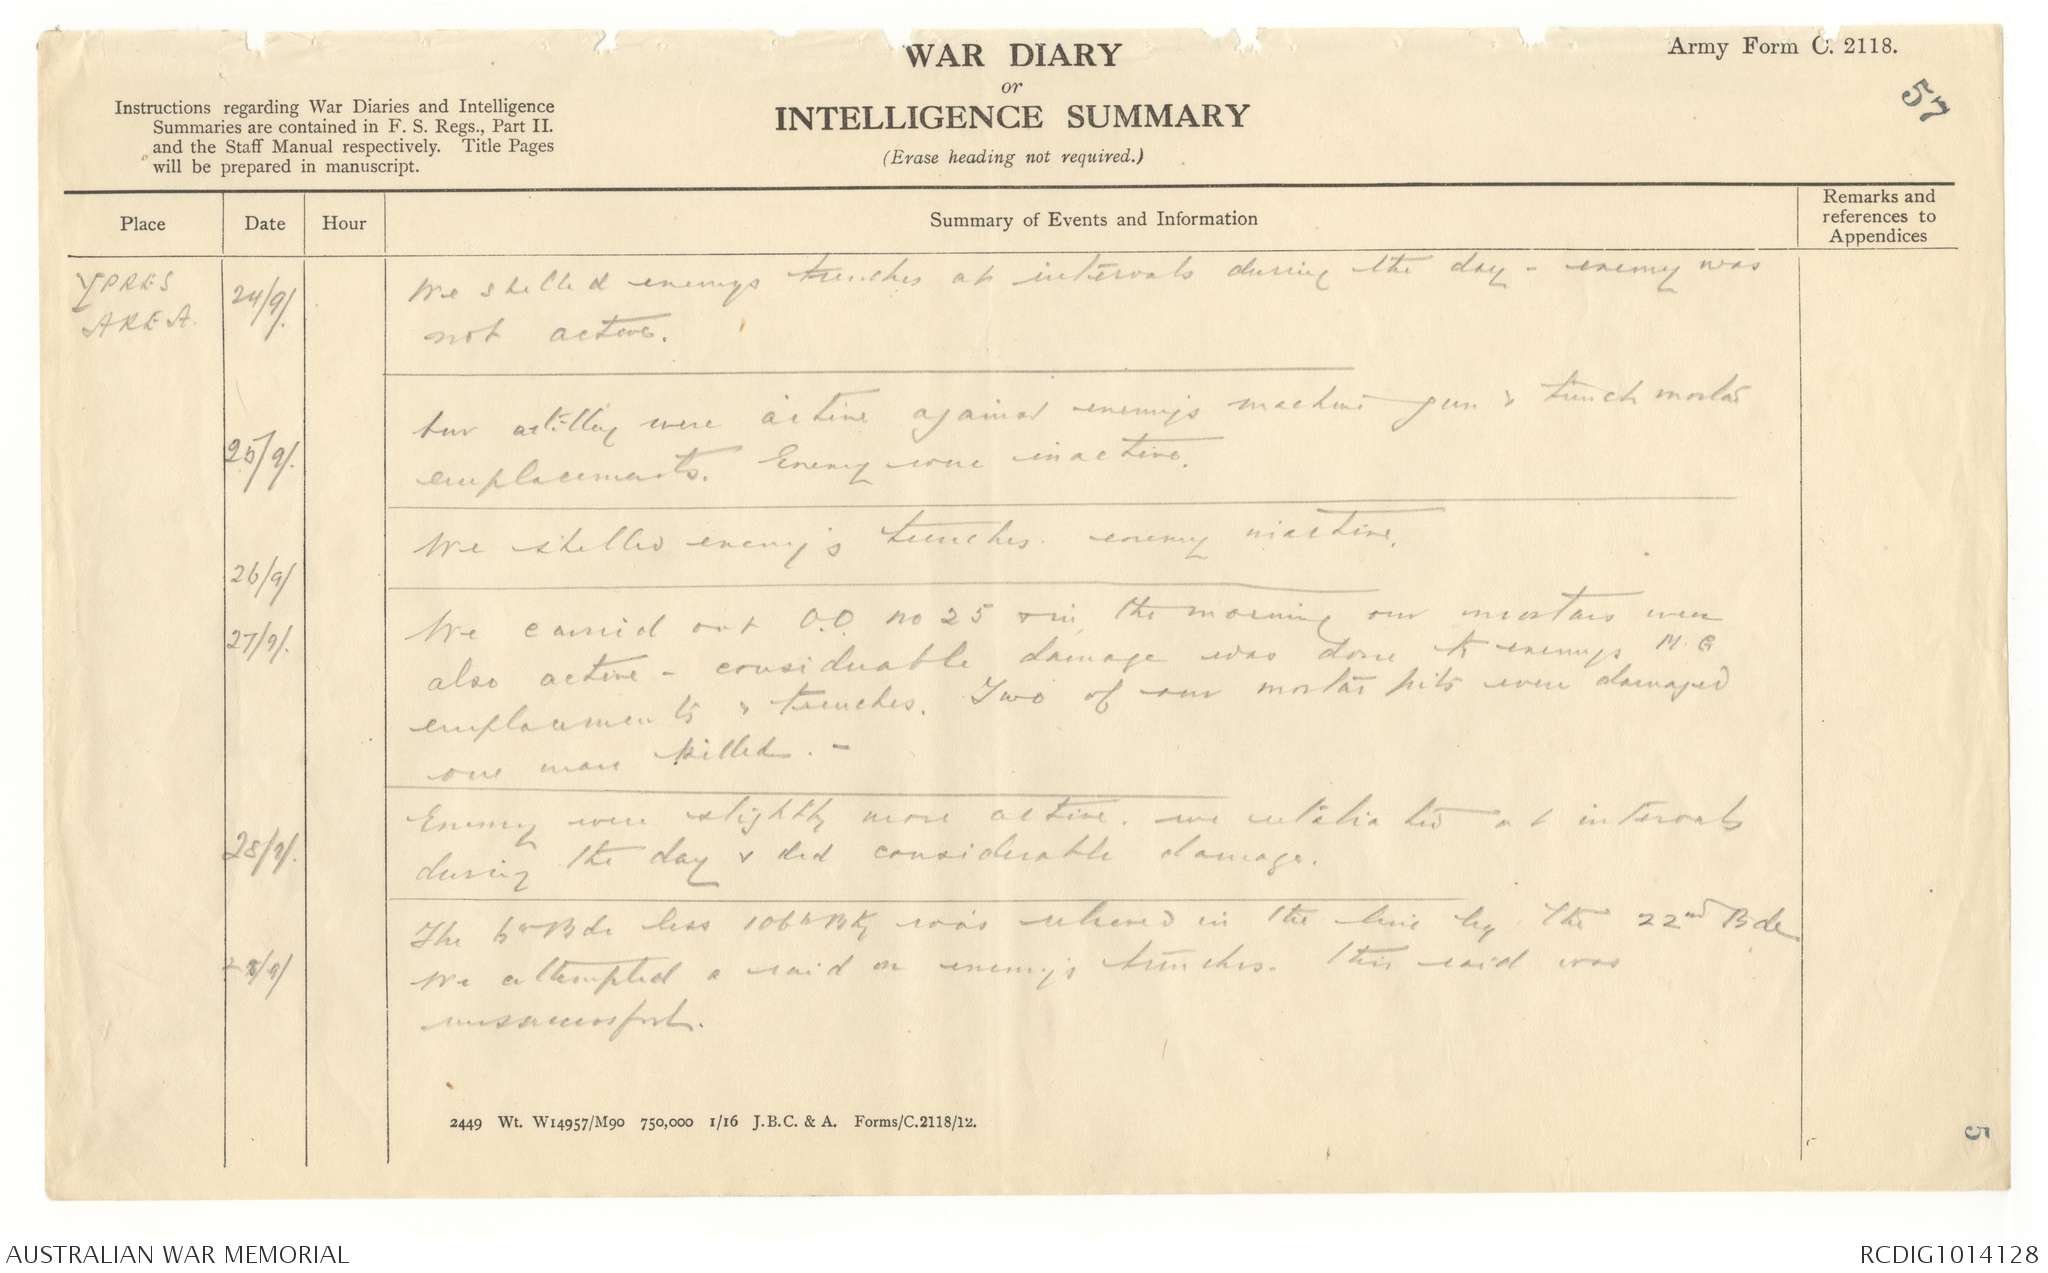 WAR DIARY
or
INTELLIGENCE SUMMARY
(Erase heading not required.)
Army Form C. 2118.
57
Instructions regarding War Diaries and Intelligence
Summaries are contained in F. S. Regs., Part II.
and the Staff Manual respectively. Title Pages
will be prepared in manuscript.
Place Date Hour Summary of Events and Information Remarks and
references to
Appendices
YPRES
AREA.
24/9/. We shelled enemys trenches at intervals during the day - enemy was
not active.
25/9/. Our artillery were active against enemy's machine gun & trench mortar
emplacements. Enemy were inactive.
26/9/ We shelled enemy's trenches. enemy inactive.
27/9/. We carried out O.O. no 25 & in the morning our mortars were
also active - considerable damage was done to enemys M.G
emplacements & trenches. Two of our mortar pits were damaged
one man killed. -
28/9/. Enemy were slightly more active. we retaliated at intervals
during the day & did considerable damage.
/9/ The Bde less 106th Bty was relieved in the line by the 22nd Bde
We attempted a raid on enemy's trenches. this raid was
unsuccessful.
2449 Wt. W14957/M90 750,000 1/16 J.B.C. & A. Forms/C.2118/12.
5
AUSTRALIAN WAR MEMORIAL
RCDIG1014128